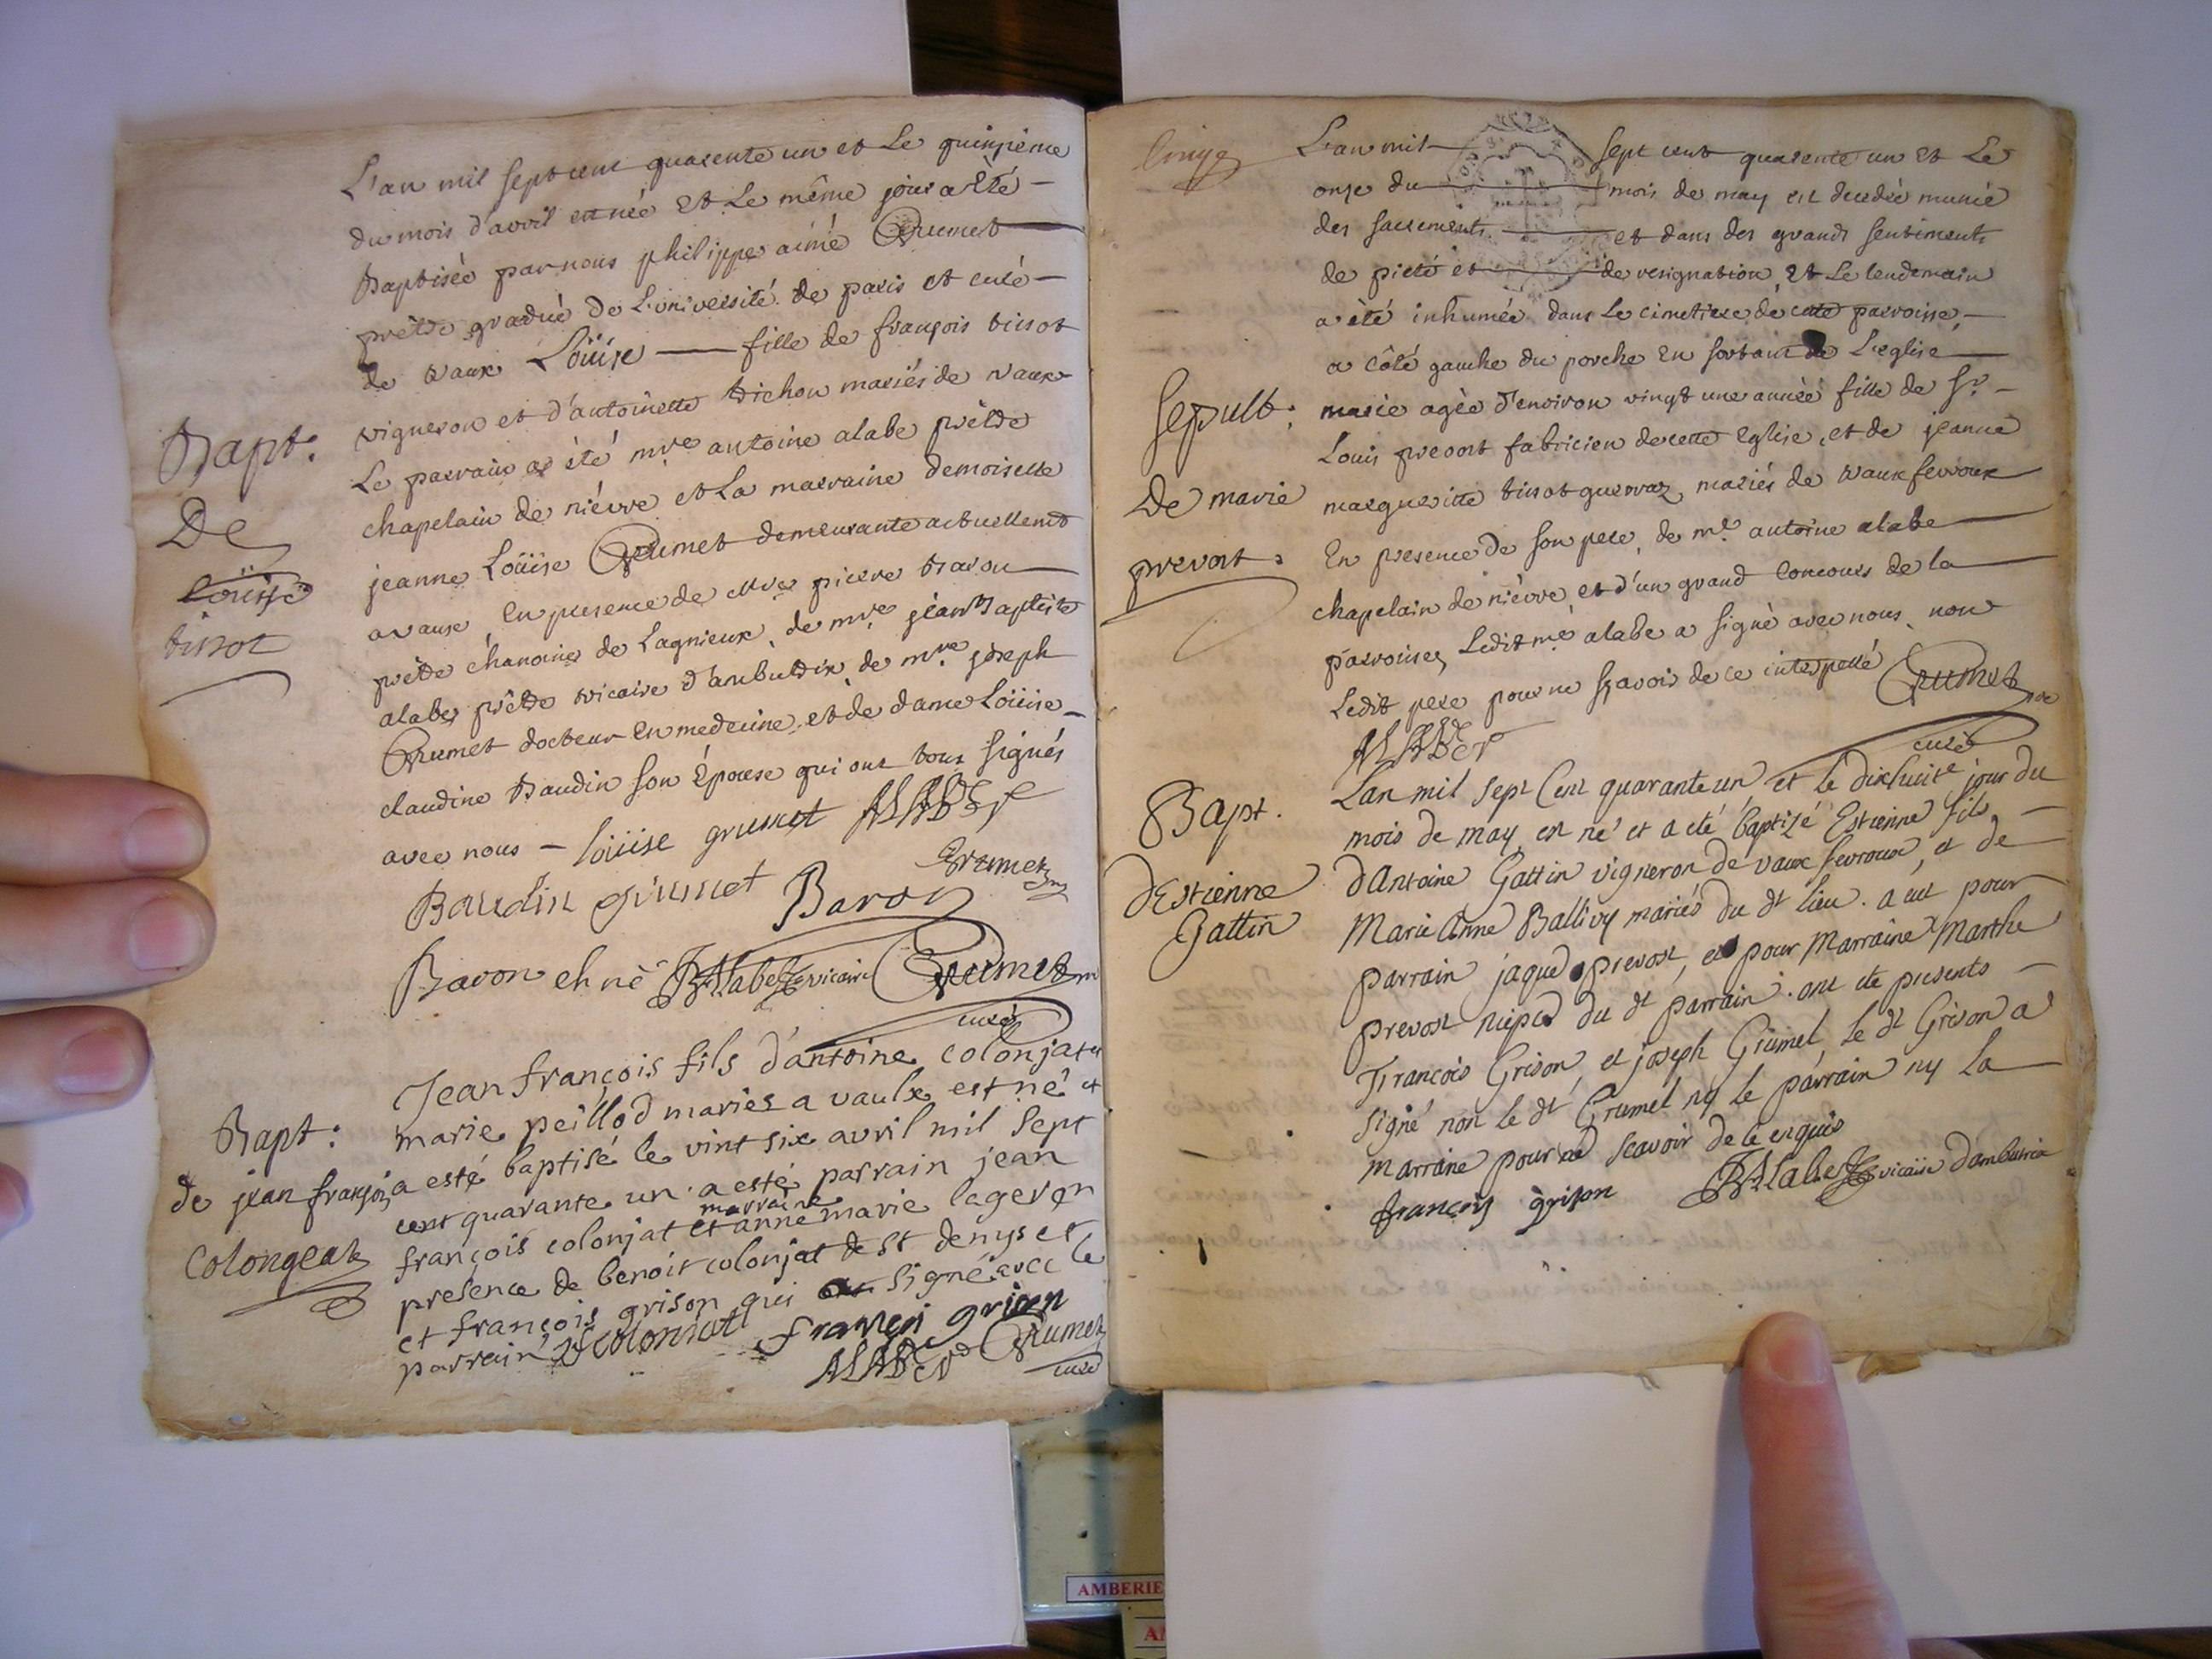 L'an mil sept cent quarente un et Le quinzième
du mois d'avril est née et Le même jour a été
Baptisée par nous philippe aimé Grumet
prêtre gradué de L'université de paris et curé
de vaux Loüise fille de françois tissot
vigneron et d'antoinette dichon mariés de vaux
Le parrain a été mre antoine alabe prêtre
chapelain de niévre et La marraine demoiselle
jeanne Loüise Grumet demeurante actuellemt
a vaux, en presence de mre pierre Baron
prêtre chanoine de Lagnieux, de mre jean Baptiste
alabe prêtre vicaire d'ambutrix, de mre joseph
Grumet docteur en medecine, et de dame Loüise
claudine Baudin son Epouse qui ont tous signés
avec nous - loüise grumet ALABE
Grumet
Baudin grumet Baron
Baron chne JBAlabe vicaire Grumet
curé
Bapt:
De
Loüise
tissot
Jean françois fils d'antoine colonjat et
marie peillod mariés a vaulx est né et
a esté baptisé le vint six avril mil sept
cent quarante un. a esté parrain jean
françois colonjat et marraine anne marie lageron
presence de benoit colonjat de st denys et
et françois grison qui ont signé avec le
parrain colonjat francois grison
ALABE Grumet
curé
Bapt:
de jean françois
Colongeat
L'an mil sept cent quarente un et Le
onze du mois de may est decedée munie
des sacrements et dans des grands sentiments
de pieté et de resignation, et Le lendemain
a été inhumée dans Le cimetiere de cette parroisse,
a côté gauche du porche en sortant de L'eglise
marie agée d'environ vingt une année fille de Sr
Louis prevost fabricien de cette Eglise, et de jeanne
marguerite tissot guerraz, mariés de vaux fevroux
En presence de son pere, de mre antoine alabe
chapelain de niévre, et d'un grand concours de la
parroisse, Ledit mre alabe a signé avec nous, non
Ledit pere pour ne sçavoir de ce interpellé Grumet
ALABE curé
Sepult:
De marie
prevost:
Lan mil sept Cent quarante un, et le dixhuite jour du
mois de may, est né et a eté baptizé Estienne fils
dAntoine Gattin vigneron de vaux fevroux, et de
Marie Anne Ballivy mariés du dt lieu. a eut pour
parrain jaque prevost, et pour Marraine Marthe
prevost niepce du dt parrain. ont ete presents
François Grison, et joseph Grumel, le dt Grison a
signé non le dt Grumel ny le parrain ny la
marraine pour ne scavoir de ce enquis
francois grison JBAlabe vicaire d'ambutrix
Bapt.
dEstienne
Gattin
AMBERIE